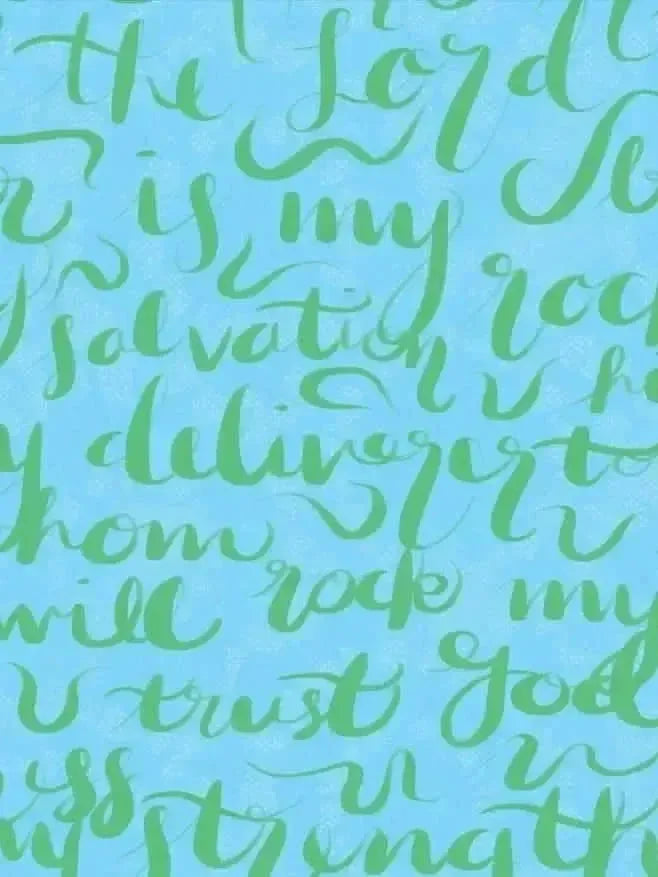 the Lord
is my
my rock
salvation
deliverer to
whom
will rock my
trust God
my strength